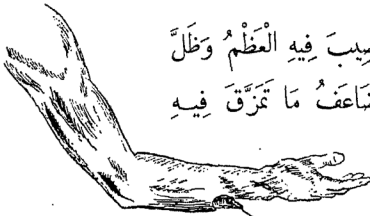 صِيبَ فِيهِ الْعَظْمُ وَظَلَّ
ضَاعَفُ مَا تَمَزَّقَ فِيهِ